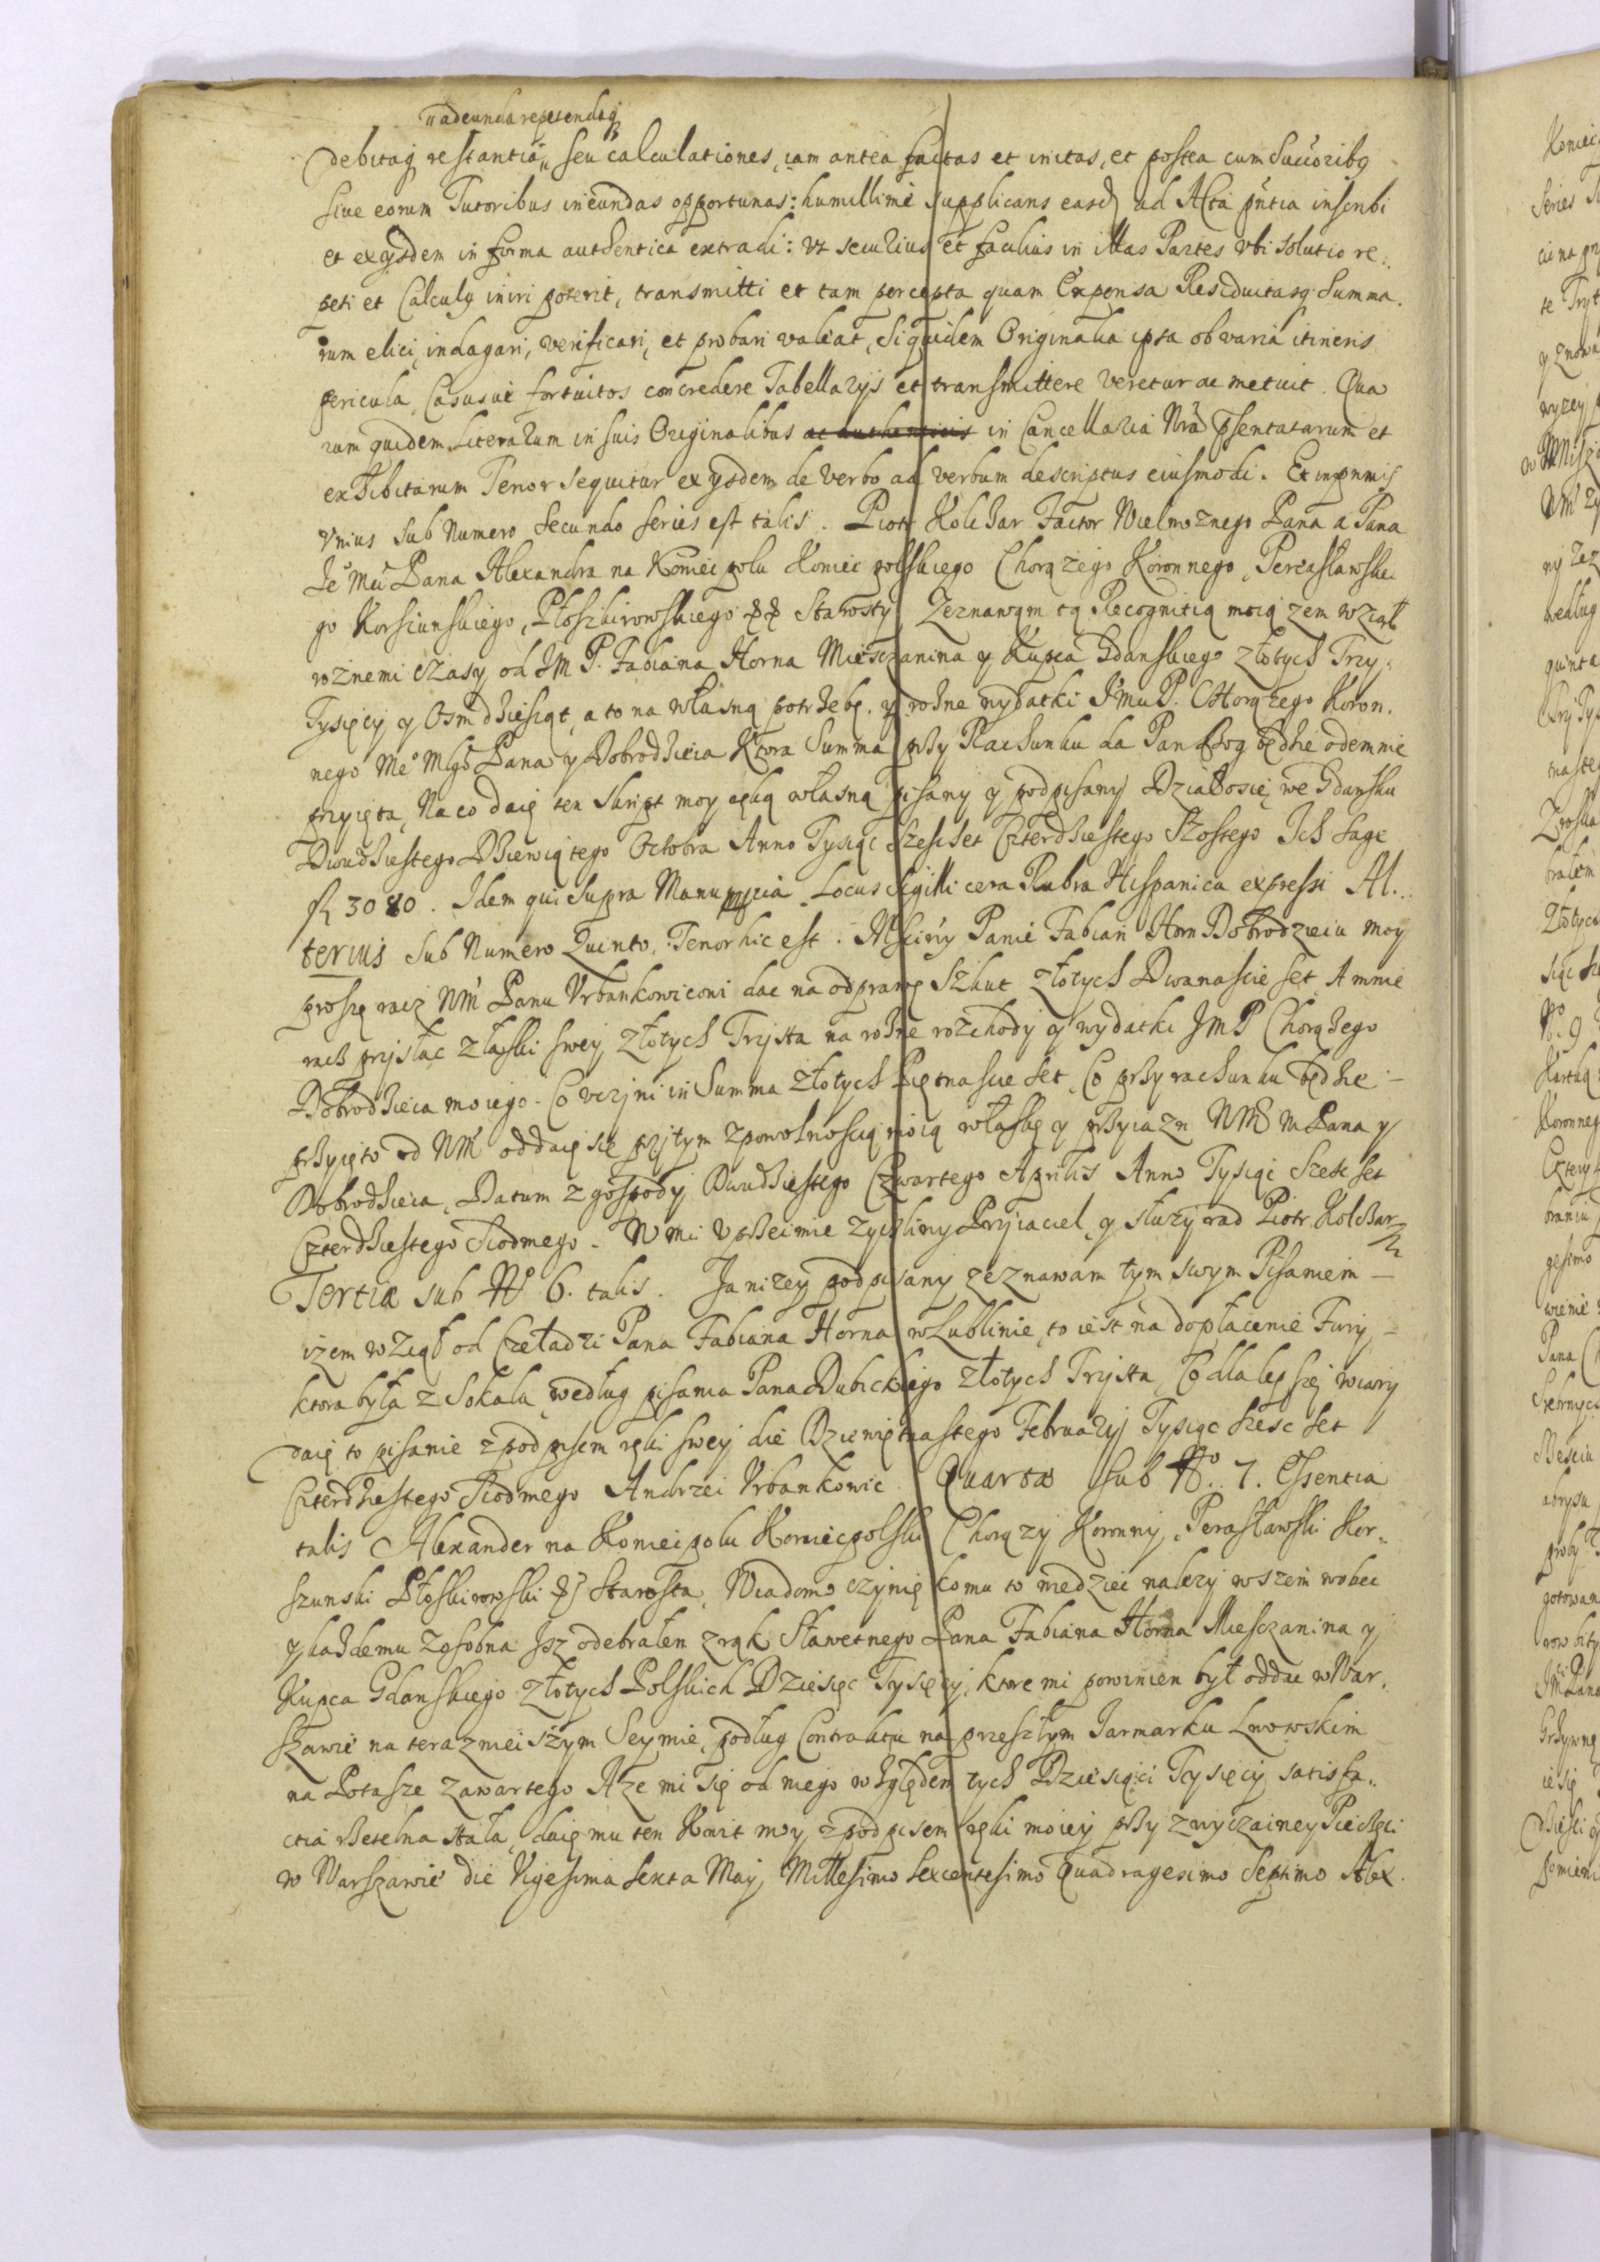 "adeunda repetendaq
debitaq restantia" seu calculationes, iam antea factas et initas, et postea cum Succoribq
siue eorum Tutoribus ineundas opportunas: humillime supplicans easd ad Acta pntia inscribi
et exysdem in forma authentica extradi: Vt securius et facilius in illas Partes vbi solutio re:
peti et Calculq iniri poterit, transmitti et tam percepta quam Expensa Residuitasq Summa.
rum elici, indagari, verificari, et probari valeat, Siquidem Originalia ipsa ob varia itineris
pericula, Casusue fortuitos concredere Tabellarijs et transmittere veretur ac metuit. Qua
rum quidem Literarum in suis Originalibus ac authenticis in Cancellaria Nra Psentatarum et
exhibitarum Tenor sequitur ex ysdem de verbo ad verbum descriptus eiusmodi. Et inprimis
vnius Sub Numero Secundo series est talis. Piotr Kolchar Factor Wielmoznego Pana a Pana
Je Mci Pana Alexandra na Koniecpolu Koniecpolskiego Chorązego Koronnego, Pereasławskie
go Korsiunskiego, Płoskirowskiego Starosty Zeznawam tą Recognitią moią zem wziął
roznemi czasy od JM P. Fabiana Horna Miesczanina y Kupca Gdanskiego złotych Trzy
Tysięcy y Osmdziesiąt, a to na własną potrzebę. y rozne wydatki Jmu P. Chorązego Koron.
nego Me Mgo Pana y Dobrodzieia Ktora Summa przy Rachunku da Pan Bog będzie odemnie
przyięta, Na co daię ten Skript moy ręką własną pisany y podpisany Działosię we Gdansku
Dwudziestego Dziewiątego Octobra Anno Tysiąc Szescset Czterdziestego Szostego Ich sage
fl 3080. Idem qui supra Manu ppria. Locus Sigilli cera Rubra Hispanica expressi Al.
terius Sub Numero Quinto. Tenor hic est. Mściwy Panie Fabian Horn Dobrodzieiu moy
proszę racz WM Panu Vrbankowiconi dac na odprawę Szkut złotych Dwanascie set A mnie
racz przysłac z łaski swey złotych Trzysta na rozne rozchody y wydatki JMP Chorązego
Dobrodzieia moiego. Co vczyni in Summa złotych Piętnascie set, Co przy rachunku będzie -
przyięto od WM oddaię się przytym z powolnoscią moią w łaskę y przyiazn WM M Pana y
Dobrodzieia, Datum z gospody Dwudziestego Czwartego Aprilis Anno Tysiąc Szesc set
Czterdziestego Siodmego. W Mci Vprzeimie zyczliwy Przyiaciel y słuzyc rad Piotr Kolchar
Tertia sub No 6. talis. Ja nizey podpisany zeznawam tym swym Pisaniem -
izem wziął od Czeladzi Pana Fabiana Horna w Lublinie, to iest na dopłacenie Fury -
ktora była z Sokala według pisania Pana Dubickiego złotych Trzysta, Co dla lepszej wiary
daię to pisanie z podpisem ręki swey die Dziewiętnastego Februarij Tysiąc szesc set
Czterdziestego Siodmego Andrzei Vrbankowic. Quarta Sub No. 7. Essentia
talis Alexander na Koniecpolu Koniecpolski Chorązy Koronny, Perasławski Kor-
szunski Płoskirowski Starosta, Wiadomo czynię komu to wiedziec nalezy wszem wobec
y kazdemu zosobna Isz odebrałem z rąk Sławetnego Pana Fabiana Horna Miesczanina y
Kupca Gdanskiego złotych Polskich Dziesięc Tysięcy, ktore mi powinien był oddac w War.
szawie na terazneiszym Seymie, podług Contraktu na przeszłym Jarmarku Lwowskim
na Potasze zawartego A ze mi się od niego względem tych Dziesiąci Tysięcy satisfa..
ctia rzetelna stała, daię mu ten Kwit moy z podpisem ręki moiey przy zwyczainey Pieczęci
w Warszawie die Vigesima sexta Maij Millesimo Sexcentesimo Quadragesimo Septimo Alex.